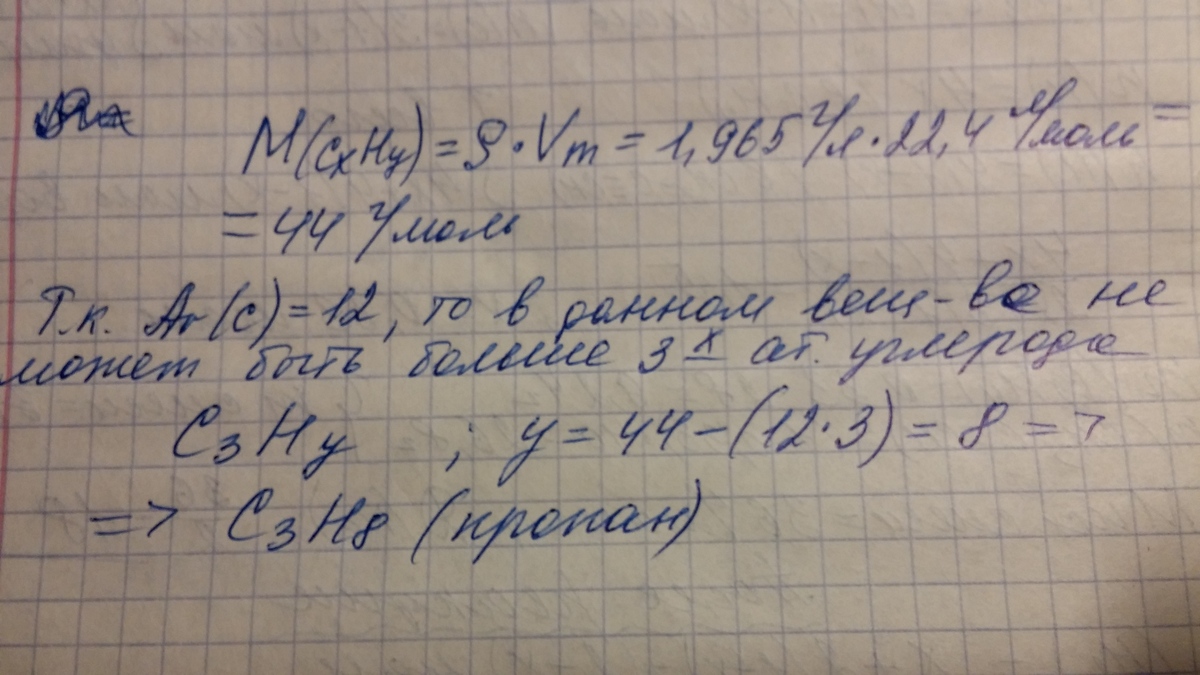 M(CxHy) = ρ·Vm = 1,965 г/л · 22,4 л/моль =
= 44 г/моль
Т.к. Ar(C) = 12, то в данном вещ-ве не
может быть больше 3х ат. углерода
C3Hy ; y = 44 - (12·3) = 8 =>
=> C3H8 (пропан)